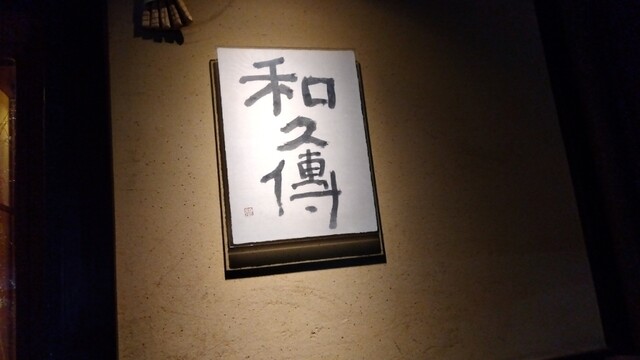 和
久
傳